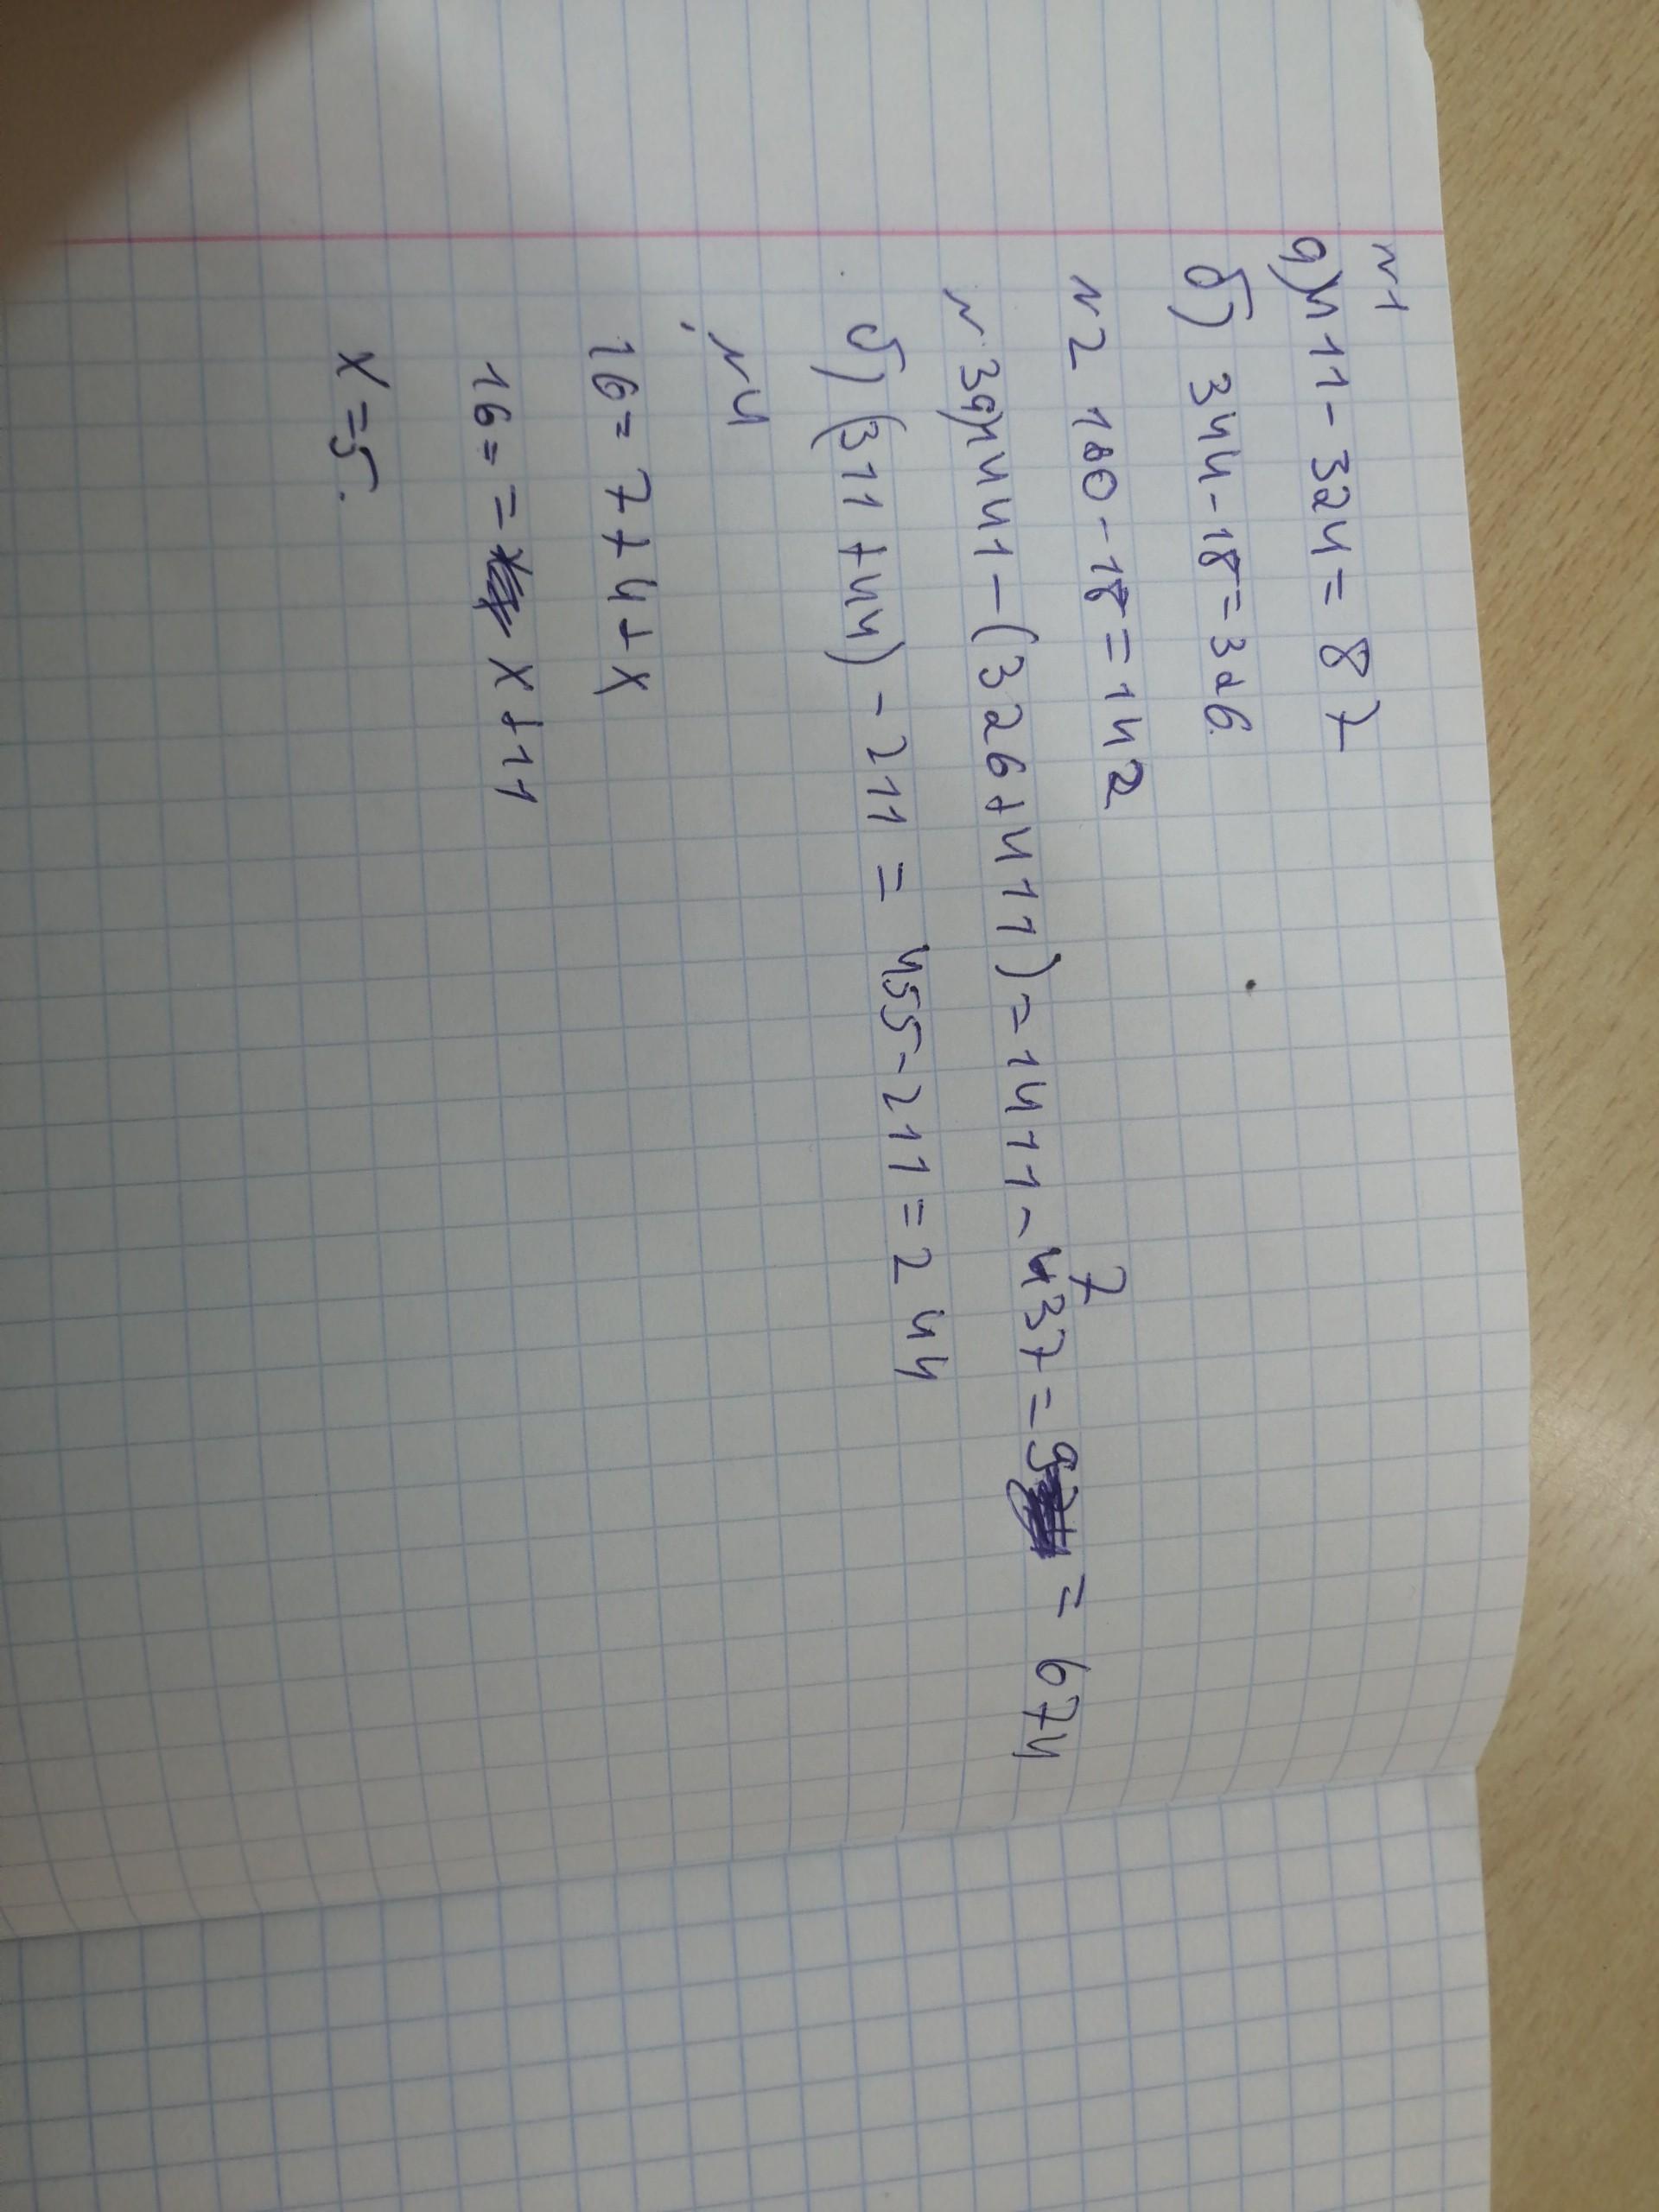 N1
а) 411 - 324 = 87
б) 344 - 18 = 326
N2 180 - 18 = 142
N3а) 1441 - (326 + 411) = 1411 - 737 = = 674
б) (311 + 44) - 211 = 455 - 211 = 244
N4
16 = 7 + 4 + x
16 = = x + 11
x = 5.